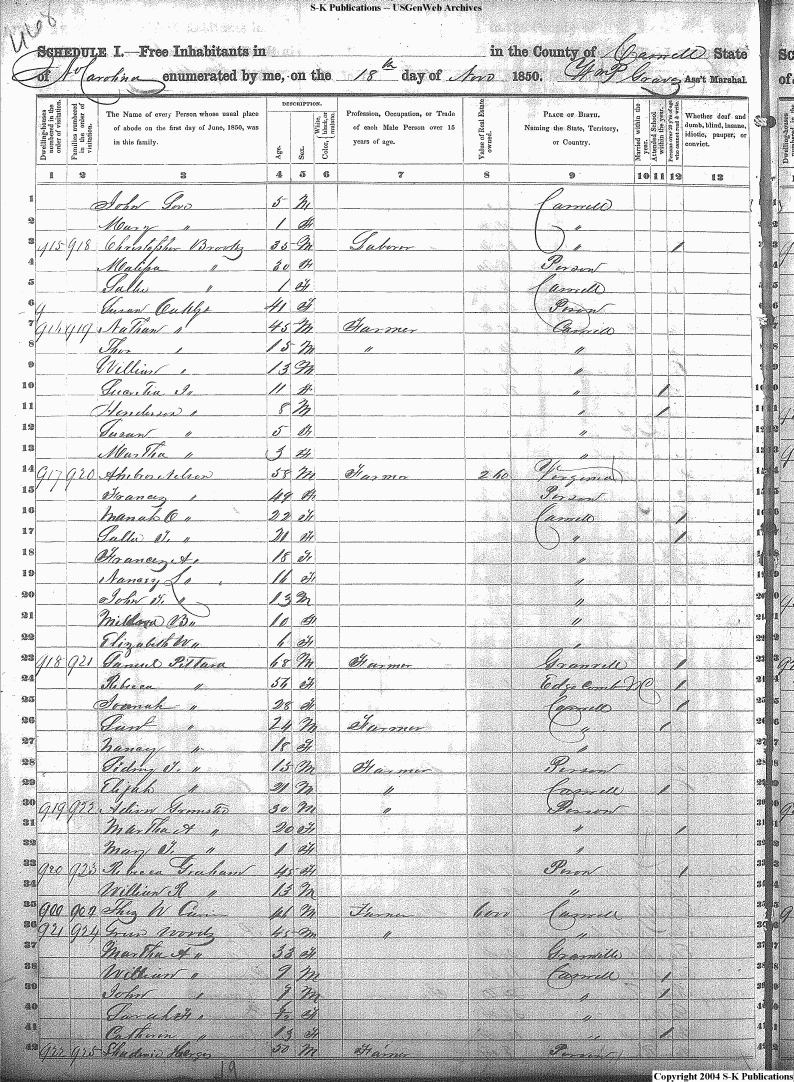 S-K Publications -- USGenWeb Archives
468
SCHEDULE I.-Free Inhabitants in in the County of Caswell State
of No Carolina enumerated by me, on the 18th day of Nov 1850. Wm P Graves Ass't Marshal.
Dwelling-houses numbered in the order of visitation.
Families numbered in the order of visitation.
The Name of every Person whose usual place of abode on the first day of June, 1850, was in this family.
DESCRIPTION.
Age.
Sex.
White, black, or mulatto.
Color,
Profession, Occupation, or Trade of each Male Person over 15 years of age.
Value of Real Estate owned.
PLACE OF BIRTH. Naming the State, Territory, or Country.
Married within the year.
Attended School within the year.
Persons over 20 y'rs of age who cannot read & write.
Whether deaf and dumb, blind, insane, idiotic, pauper, or convict.
1 2 3 4 5 6 7 8 9 10 11 12 13
1 John 5 M Caswell
2 Mary " 1 F "
3 915 918 Christopher Brooks 35 M Laborer " /
4 Malissa " 30 F Person
5 Sallie " 1 F Caswell
6 Susan 41 F Person
7 919 Nathan " 45 M Farmer Caswell
8 Thos " 15 M " "
9 William " 13 M "
10 11 F " /
11 Henderson " 8 M " /
12 Susan " 5 F "
13 Martha " 3 F "
14 917 920 Nelson 58 M Farmer 260 Virginia
15 Frances " 49 F Person
16 22 F Caswell /
17 Sallie F. " 21 F " /
18 Frances A " 18 F "
19 Nancy " 16 F "
20 John " 13 M "
21 Mildred B " 10 F "
22 Elizabeth W " 6 F "
23 918 921 Samuel Pittard 68 M Farmer Granvell /
24 Rebecca " 56 F Edgecomb NC /
25 " 28 F Caswell /
26 24 M Farmer " /
27 Nancy " 18 F "
28 Sidney " 15 M Farmer Person
29 Elijah " 21 M " Caswell /
30 919 922 30 M " Person
31 Martha A " 20 F " /
32 Mary " 1 F "
33 920 923 Rebecca Graham 45 F Person /
34 William R " 13 M "
35 900 902 W 41 M Farmer 600 Caswell
36 921 924 Woods 45 M " "
37 Martha A " 33 F Granville
38 William " 9 M Caswell /
39 John " 7 M " /
40 Sarah " F "
41 " 13 F " /
42 922 925 50 M Farmer Person
19
Copyright 2004 S-K Publications